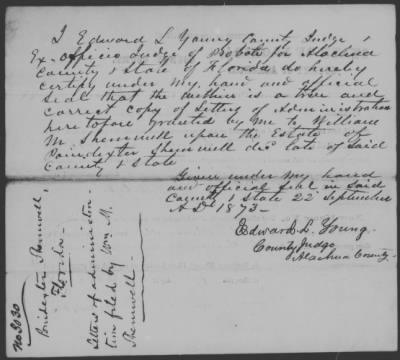 I Edward L Young County Judge &
Ex-officio Judge of Probate for Alachua
County & State of Florida do hereby
certify under my hand and official
seal that the within is a true and
correct copy of Letters of Administration
heretofore granted by me to William
M. Shemwell upon the Estate of
Poindexter Shemwell decd late of said
County & State
Given under my hand
and official seal in said
County & State 22 September
A D. 1873 -
Edward L. Young.
County Judge
Alachua County.
No 3030
Poindexter Shemwell,
Florida.
Letters of administra-
tion filed by Wm M.
Shemwell.